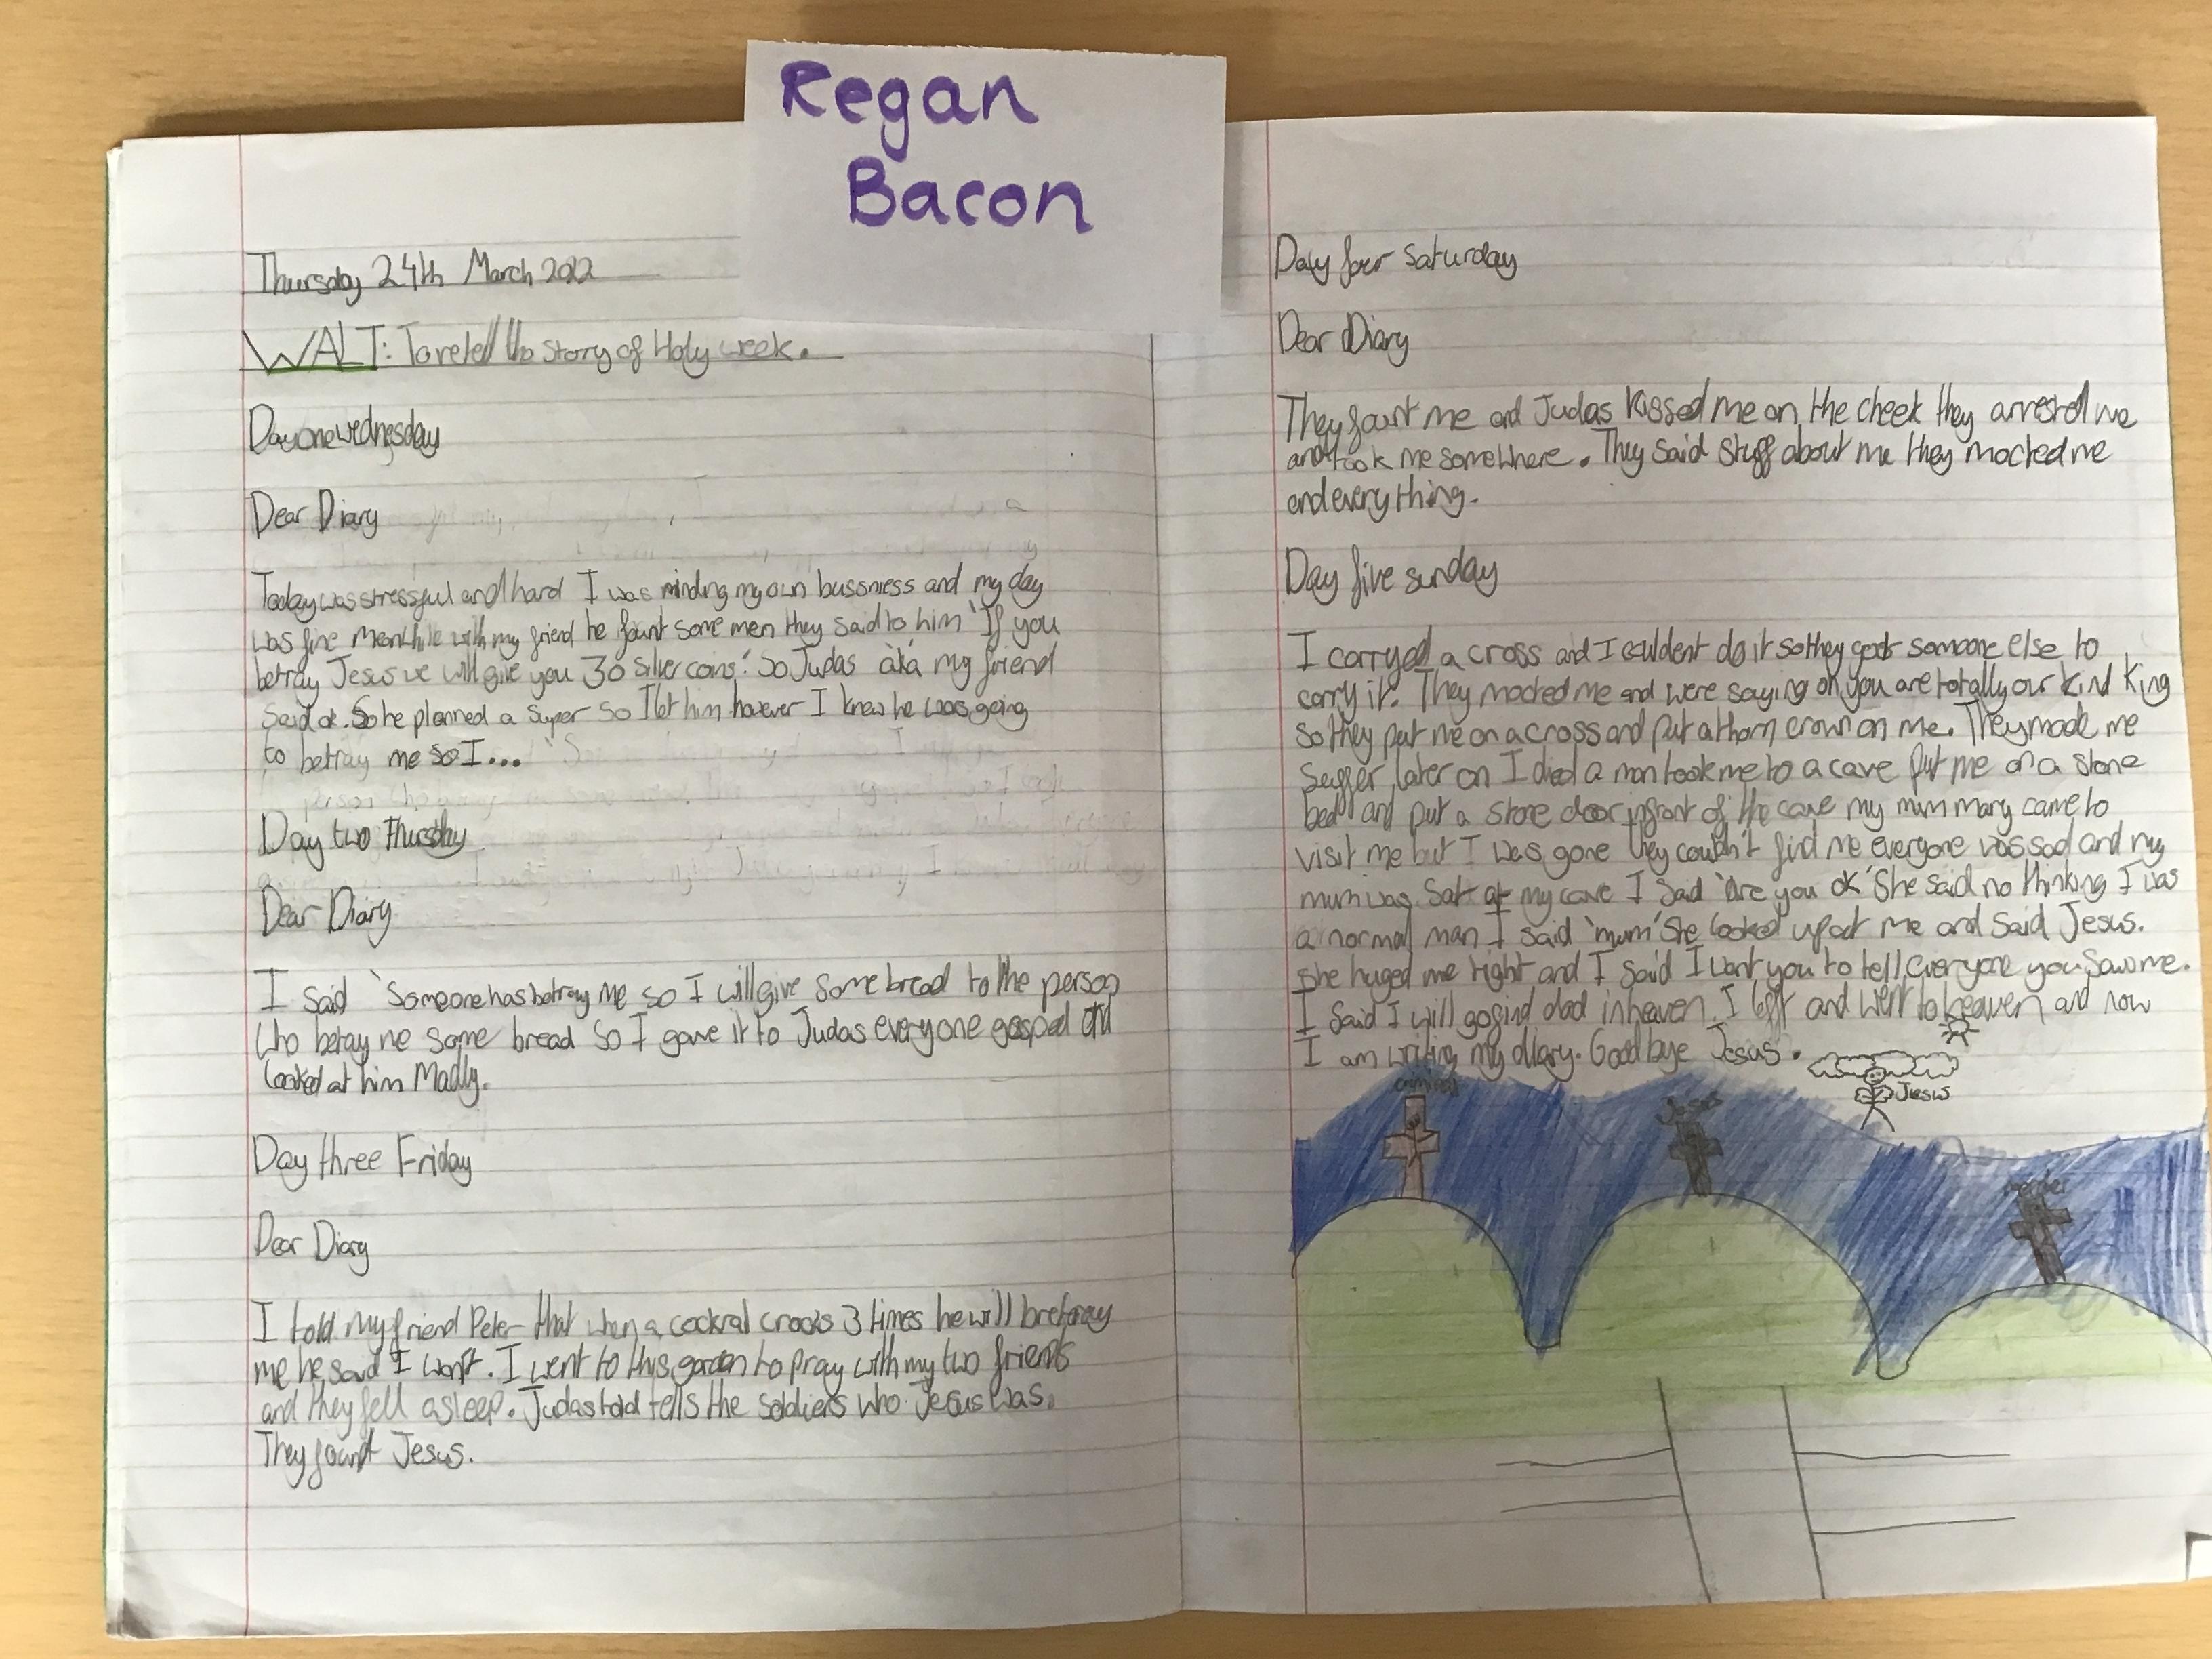 Regan
Bacon
Thursday 24th March 2022
WALT: To retell the story of Holy week.
Day one wednesday
Dear Diary
Today was stressful and hard I was minding my own bussniess and my day
was fine meanhile with my friend he fount some men they said to him 'If you
betray Jesus we will give you 30 silver coins.' So Judas aka my friend
said ok. So he planned a super so I let him however I knew he was going
to betray me so I...
Day two Thursday
Dear Diary
I said 'Someone has betray me so I will give some bread to the person
who betay me some bread so I gave it to Judas everyone gasped and
looked at him Madly.
Day three Friday
Dear Diary
I told my friend Peter that when a cockral crooks 3 times he will bretray
me he said I won't. I went to this garden to pray with my two friends
and they fell asleep. Judas told tells the soldiers who Jesus was.
They fount Jesus.
Day four Saturday
Dear Diary
They fount me and Judas kissed me on the cheek they arrested me
and took me somewhere. They said stuff about me they mocked me
and everything.
Day five sunday
I carryed a cross and I couldent do it so they got someone else to
carry it. They mocked me and were saying oh you are totally our kind King
so they put me on a cross and put a thorn crown on me. They made me
suffer later on I died a man took me to a cave put me on a stone
bed and put a stone door infront of the cave my mum mary came to
visit me but I was gone they couldn't find me everyone was sad and my
mum was sat at my cave I said 'Are you ok' She said no thinking I was
a normal man I said 'mum' She looked up at me and said Jesus.
she huged me tight and I said I want you to tell everyone you saw me.
I said I will go find dad in heaven. I left and went to heaven and now
I am writing my diary. Goodbye Jesus.
Jesus
Jesus